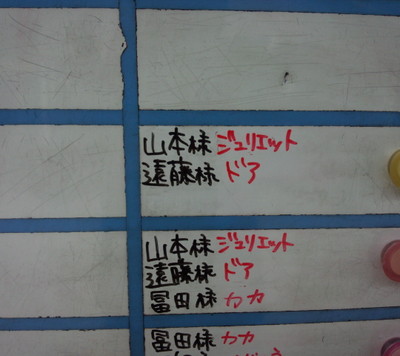 山本様 ジュリエット
遠藤様 ドア
山本様 ジュリエット
遠藤様 ドア
冨田様 カカ
冨田様 カカ